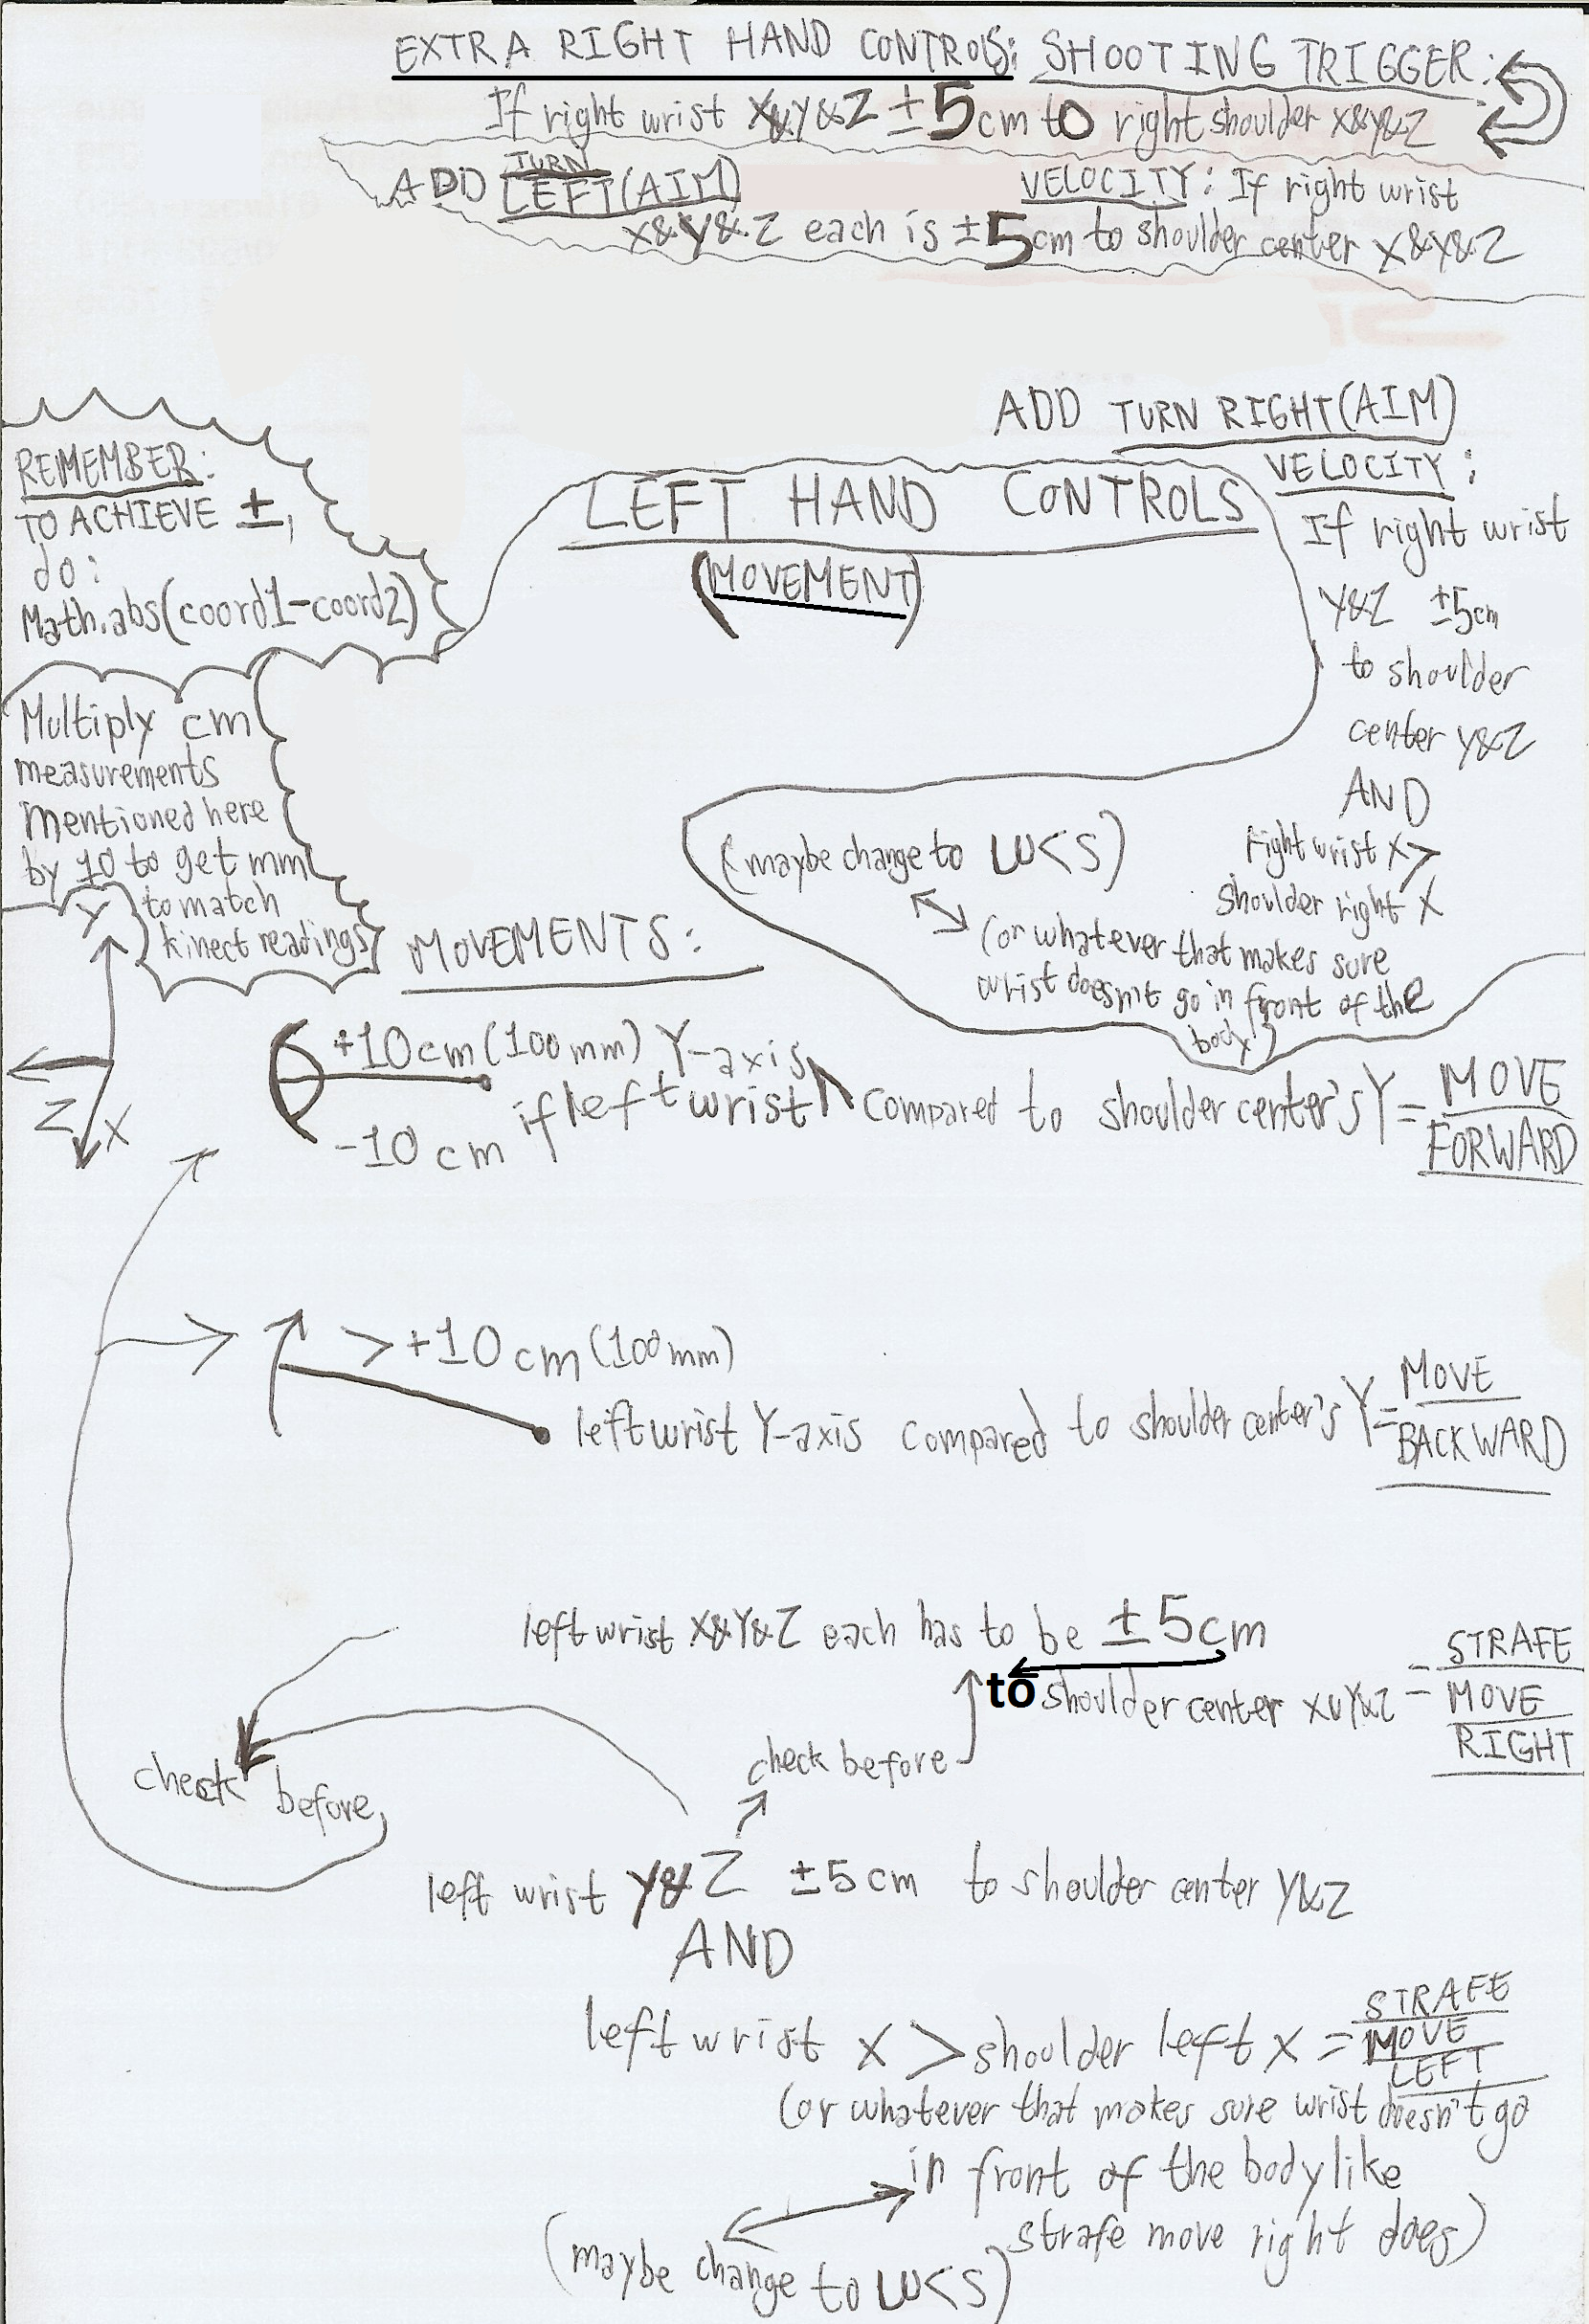 EXTRA RIGHT HAND CONTROLS: SHOOTING TRIGGER:
If right wrist X&Y&Z ±5cm to right shoulder X&Y&Z
ADD TURN LEFT(AIM) VELOCITY: If right wrist
X&Y&Z each is ±5cm to shoulder center X&Y&Z
ADD TURN RIGHT(AIM)
VELOCITY:
If right wrist
Y&Z ±5cm
to shoulder
center Y&Z
AND
right wrist X>
shoulder right X
(or whatever that makes sure
wrist doesn't go in front of the
body)
(maybe change to W<S)
REMEMBER:
TO ACHIEVE ±,
do:
Math.abs(coord1-coord2)
LEFT HAND CONTROLS
(MOVEMENT)
Multiply cm
measurements
mentioned here
by 10 to get mm
to match
kinect readings
Y
Z
X
MOVEMENTS:
+10cm(100mm) Y-axis
-10cm if left wrist ^ compared to shoulder center's Y = MOVE
FORWARD
> +10cm(100mm)
left wrist Y-axis compared to shoulder center's Y = MOVE
BACKWARD
left wrist X&Y&Z each has to be ±5cm
to shoulder center X&Y&Z = STRAFE
MOVE
RIGHT
check before
check before
left wrist Y&Z ±5cm to shoulder center Y&Z
AND
left wrist X > shoulder left X = STRAFE
MOVE
LEFT
(or whatever that makes sure wrist doesn't go
in front of the body like
strafe move right does)
(maybe change to W<S)